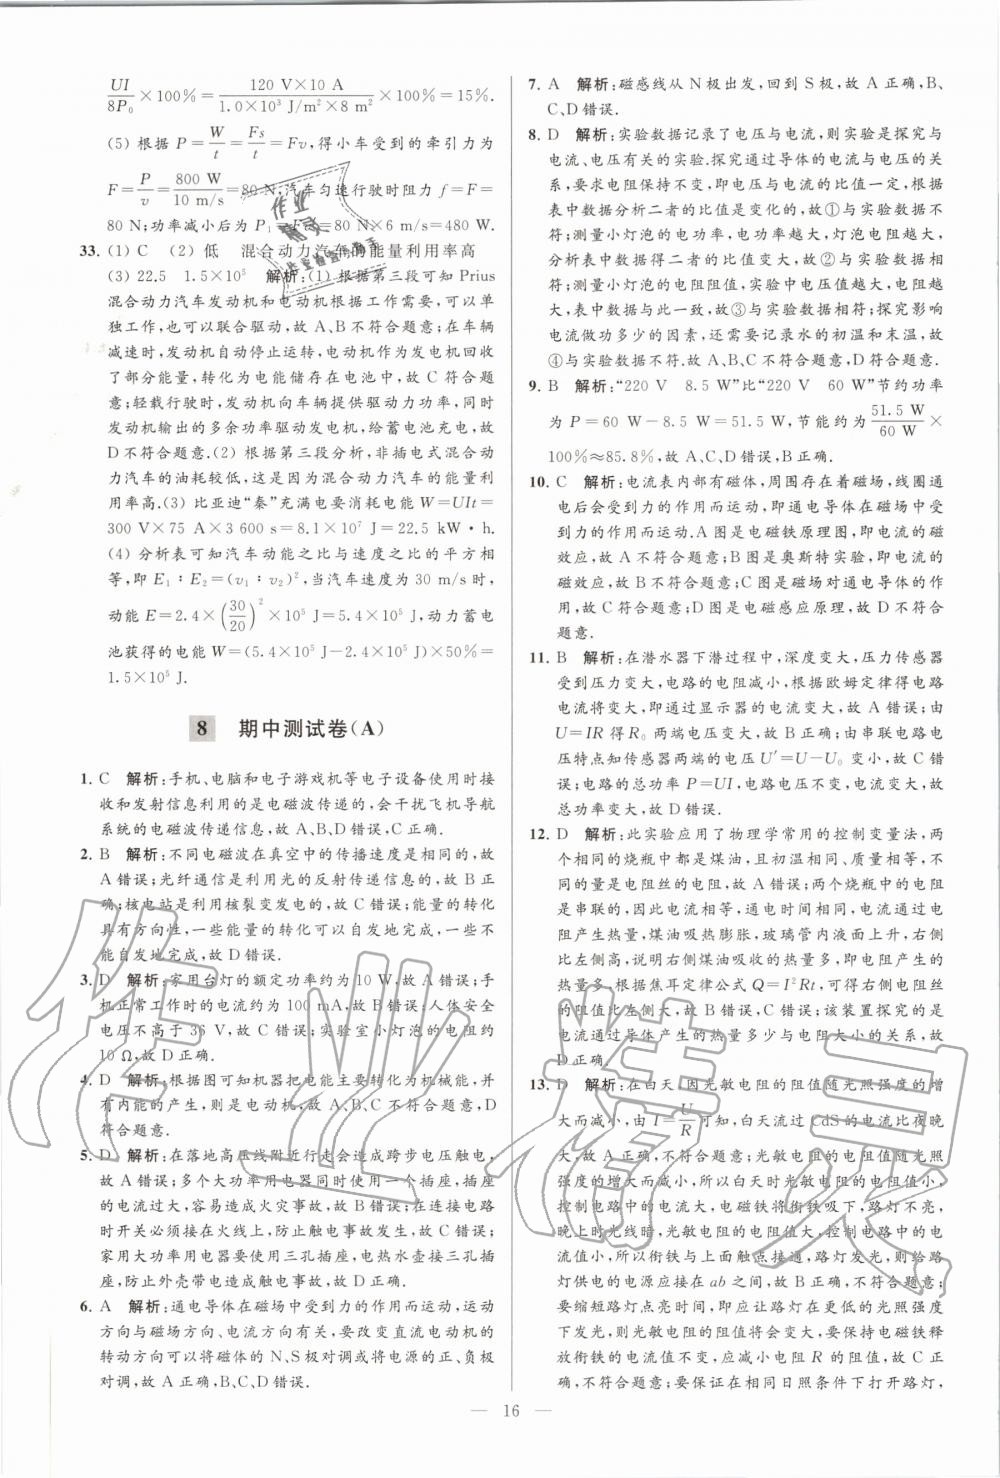 UI/8P₀×100%=120 V×10 A/1.0×10³ J/m²×8 m²×100%=15%.
(5) 根据 P=W/t=Fs/t=Fv,得小车受到的牵引力为
F=P/v=800 W/10 m/s=80 N;汽车匀速行驶时阻力 f=F=
80 N;功率减小后为 P₁=Fv=80 N×6 m/s=480 W.
33. (1) C (2) 低 混合动力汽车的能量利用率高
(3) 22.5 1.5×10⁵ 解析:(1) 根据第三段可知 Prius
混合动力汽车发动机和电动机根据工作需要,可以单
独工作,也可以联合驱动,故 A、B不符合题意;在车辆
减速时,发动机自动停止运转,电动机作为发电机回收
了部分能量,转化为电能储存在电池中,故 C 符合题
意;轻载行驶时,发动机向车辆提供驱动力功率,同时
发动机输出的多余功率驱动发电机,给蓄电池充电,故
D不符合题意.(2) 根据第三段分析,非插电式混合动
力汽车的油耗较低,这是因为混合动力汽车的能量利
用率高.(3) 比亚迪“秦”充满电要消耗电能 W=UIt=
300 V×75 A×3 600 s=8.1×10⁷ J=22.5 kW·h.
(4) 分析表可知汽车动能之比与速度之比的平方相
等,即 E₁∶E₂=(v₁∶v₂)²,当汽车速度为 30 m/s时,
动能 E=2.4×(30/20)²×10⁵ J=5.4×10⁵ J;动力蓄电
池获得的电能 W=(5.4×10⁵ J-2.4×10⁵ J)×50%=
1.5×10⁵ J.
8 期中测试卷(A)
1. C 解析:手机、电脑和电子游戏机等电子设备使用时接
收和发射信息利用的是电磁波传递的,会干扰飞机导航
系统的电磁波传递信息,故 A、B、D错误,C正确.
2. B 解析:不同电磁波在真空中的传播速度是相同的,故
A错误;光纤通信是利用光的反射传递信息的,故 B正
确;核电站是利用核裂变发电的,故 C错误;能量的转化
具有方向性,一些能量的转化可以自发地完成,一些不
能自发地完成,故 D错误.
3. D 解析:家用台灯的额定功率约为 10 W,故 A错误;手
机正常工作时的电流约为 100 mA,故 B错误;人体安全
电压不高于 36 V,故 C错误;实验室小灯泡的电阻约
10 Ω,故 D正确.
4. D 解析:根据图可知机器把电能主要转化为机械能,并
有内能的产生,则是电动机,故 A、B、C不符合题意,D符
合题意.
5. D 解析:在落地高压线附近行走会造成跨步电压触电,
故 A错误;多个大功率用电器同时使用一个插座,插座
的电流过大,容易造成火灾事故,故 B错误;在连接电路
时开关必须接在火线上,防止触电事故发生,故 C错误;
家用大功率用电器要使用三孔插座,电热水壶接三孔插
座,防止外壳带电造成触电事故,故 D正确.
6. A 解析:通电导体在磁场中受到力的作用而运动,运动
方向与磁场方向、电流方向有关,要改变直流电动机的
转动方向可以将磁体的 N、S极对调或将电源的正、负极
对调,故 A正确,B、C、D错误.
7. A 解析:磁感线从 N极出发,回到 S极,故 A正确,B、
C、D错误.
8. D 解析:实验数据记录了电压与电流,则实验是探究与
电流、电压有关的实验.探究通过导体的电流与电压的关
系,要求电阻保持不变,即电压与电流的比值一定,根据
表中数据分析二者的比值是变化的,故①与实验数据不
符;测量小灯泡的电功率,电功率越大,小灯泡电阻越大,
分析数据得二者的比值变大,故②与实验数据相
符;测量小灯泡的电阻阻值,实验中电压与电流的比值变
大,表中数据与此一致,故③与实验数据相符;探究影响
电流做功多少的因素,还需要记录水的初温和末温,故
④与实验数据不符.故 A、B、C不符合题意,D符合题意.
9. B 解析:“220 V 8.5 W”比“220 V 60 W”节约功率
为 P=60 W-8.5 W=51.5 W,节能约为51.5 W/60 W×
100%≈85.8%,故 A、C、D错误,B正确.
10. C 解析:电流表内部有磁体,周围存在着磁场,线圈通
电后会受到力的作用而运动,即通电导体在磁场中受
到力的作用而运动.A图是电磁铁原理图,即电流的磁
效应,故 A不符合题意;B图是奥斯特实验,即电流的
磁效应,故 B不符合题意;C图是磁场对通电导体的作
用,故 C符合题意;D图是电磁感应原理,故 D不符合
题意.
11. B 解析:在潜水器下潜过程中,深度变大,压力传感器
受到压力变大,电路的电阻减小,根据欧姆定律得电路
电流将变大,即通过显示器的电流变大,故 A错误;由
U=IR得 R₀ 两端电压变大,故 B正确;由串联电路电
压特点知传感器的电压 U′=U-U₀ 变小,故 C错
误;电路的总功率 P=UI,电压不变,电流变大,故
总功率变大,故 D错误.
12. D 解析:此实验应用了物理学常用的控制变量法,两
个相同的烧瓶中都是煤油,且初温相同、质量相等,不
同的量是电阻丝的电阻,故 A错误;两个烧瓶中的电阻
是串联的,因此电流相等,通电时间相同,电流通过电
阻产生热量,煤油吸热膨胀,玻璃管内液面上升,右侧
比左侧高,表明右侧煤油吸收的热量多,即右侧产生的
热量多,根据焦耳定律公式 Q=I²Rt,可得右侧电阻丝
的阻值比左侧大,故 B错误,C错误;该装置探究的是
电流通过导体产生的热量多少与电阻大小的关系,故
D正确.
13. D 解析:在白天,因光敏电阻的阻值随光照强度的增
大而减小,由 I=U/R可知,白天流过 CdS的电流比夜晚
大,故 A不符合题意;光敏电阻的阻值随光照
强度的增大而减小,所以白天时光敏电阻的阻值小,
控制电路中的电流大,电磁铁将衔铁吸下,路灯不亮,
晚上时光线暗,光敏电阻的电阻值大,控制电路中的电
流小,所以衔铁与上面触点接通,路灯发光,则给路
灯供电的电源应接在 ab之间,故 B、C不符合题意;
要缩短路灯点亮时间,即应让路灯在更低的光照强度
下发光,则光敏电阻的阻值将会变大,要保持电磁铁释
放衔铁的电流值不变,应减小电阻 R的阻值,故 D符合
题意.要保证在相同日照条件下打开路灯,
16
作业精灵